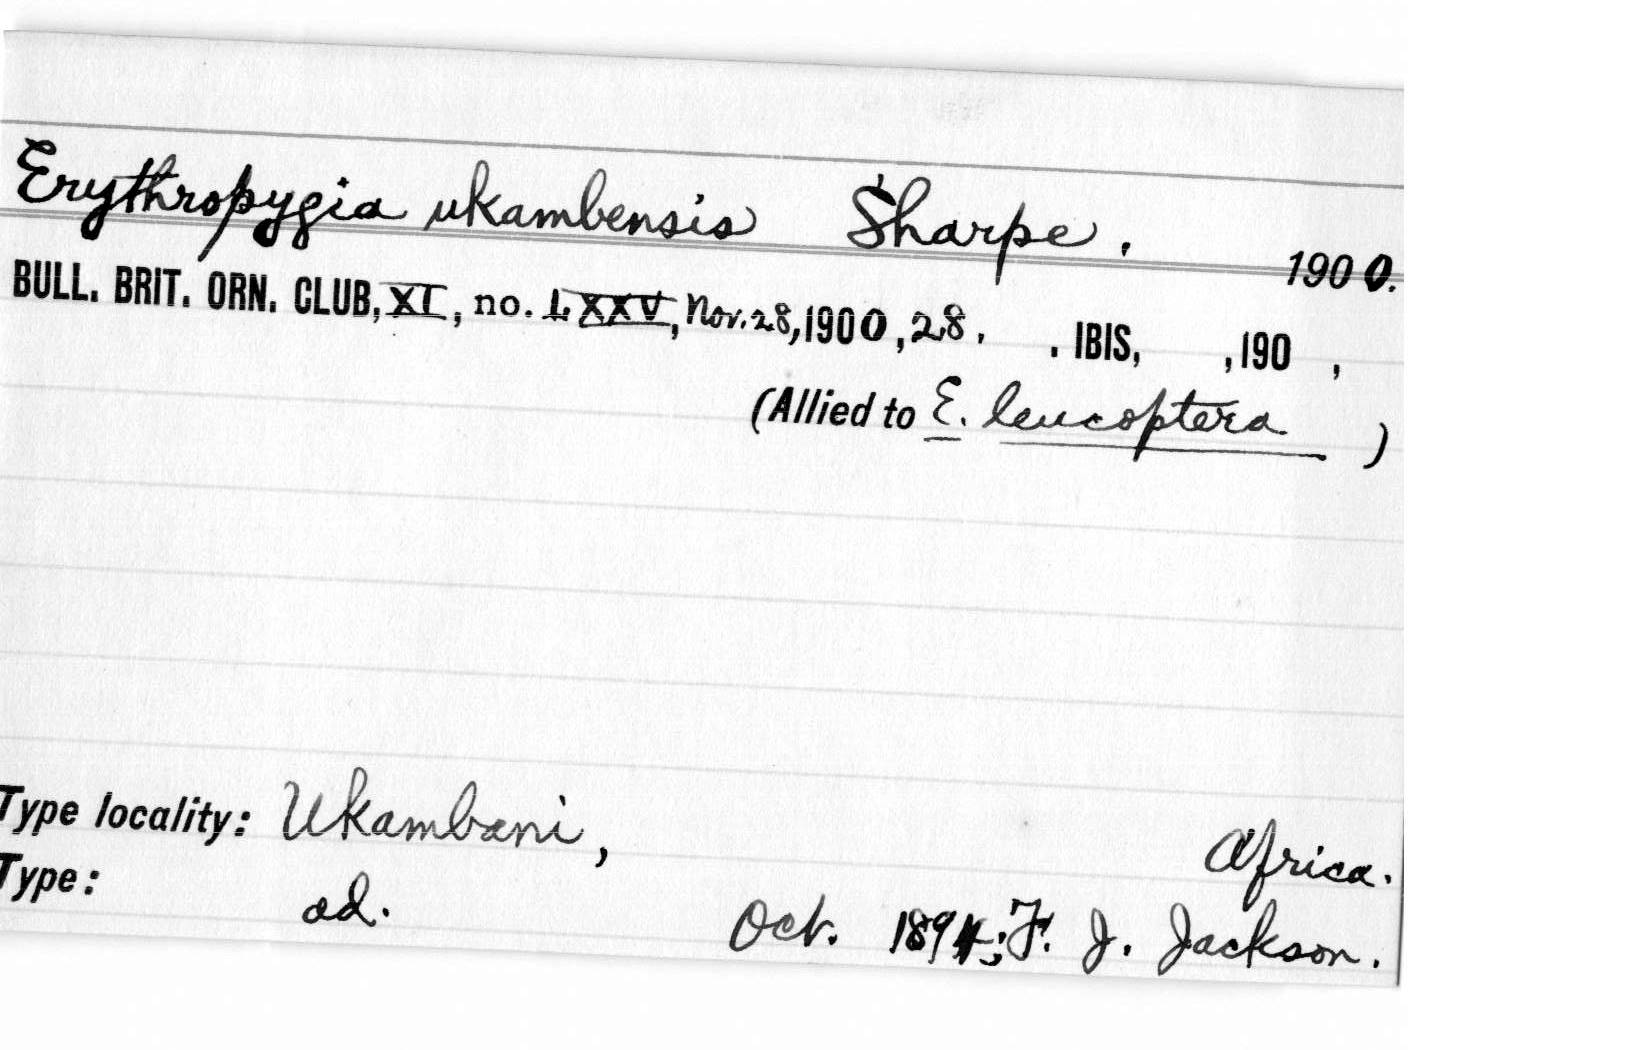 Erythropygia ukambensis Sharpe. 1900.
BULL. BRIT. ORN. CLUB, XI, no. LXXV, Nov. 28, 1900, 28. . IBIS, , 190 ,
(Allied to E. leucoptera )
Type locality: Ukambani, Africa.
Type: ad. Oct. 1894; F. J. Jackson.